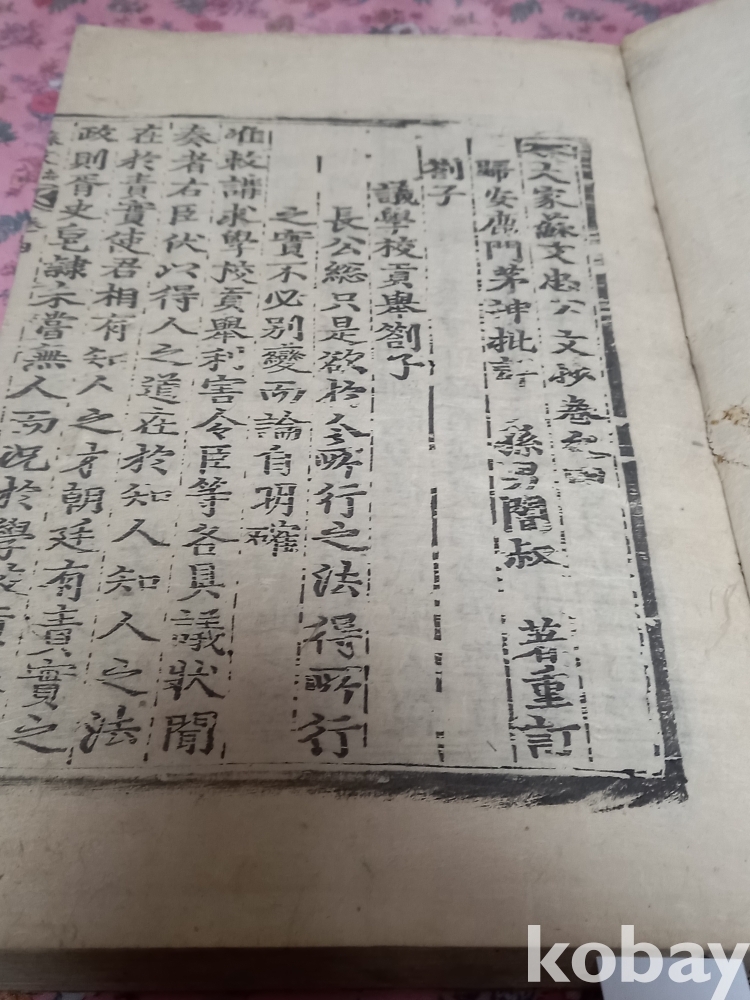 宋大家蘇文忠公文抄卷之四
歸安鹿門茅坤批評 孫男闇叔 著重訂
劄子
議學校貢舉劄子
長公總只是欲於今所行之法得所行
之實不必別變而論自明確
准敕講求學校貢舉利害令臣等各具議狀聞
奏者右臣伏以得人之道在於知人知人之法
在於責實使君相有知人之才朝廷有責實之
政則胥史皂隷未嘗無人而況於學校貢
kobay